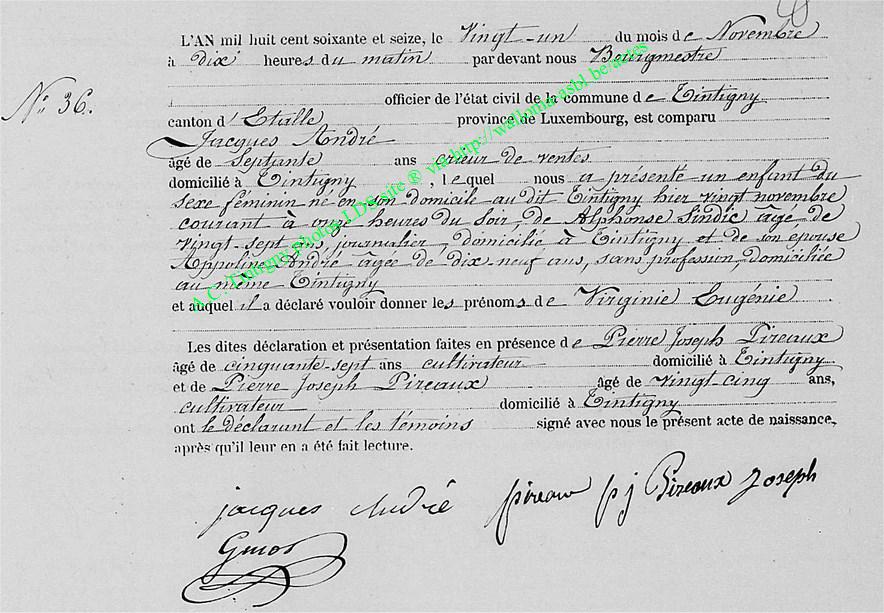 L'AN mil huit cent soixante et seize, le Vingt-un du mois de Novembre
à dix heures du matin par devant nous Bourgmestre
N° 36.
officier de l'état civil de la commune de Tintigny
canton d'Etalle province de Luxembourg, est comparu
Jacques André
âgé de Septante ans crieur de ventes
domicilié à Tintigny, lequel nous a présenté un enfant du
sexe féminin né en son domicile au dit Tintigny hier vingt novembre
courant à onze heures du soir, de Alphonse Sindic âgé de
vingt-sept ans, journalier, domicilié à Tintigny et de son épouse
Appoline André âgée de dix neuf ans, sans profession, domiciliée
au même Tintigny
et auquel il a déclaré vouloir donner les prénoms de Virginie Eugénie
Les dites déclaration et présentation faites en présence de Pierre Joseph Pireaux
âgé de cinquante-sept ans cultivateur domicilié à Tintigny
et de Pierre Joseph Pireaux âgé de vingt-cinq ans,
cultivateur domicilié à Tintigny
ont le déclarant et les témoins signé avec nous le présent acte de naissance,
après qu'il leur en a été fait lecture.
jacques André pireaux p j Pireaux Joseph
A.C. Tintigny photos LDS site ® via http://wallonia-asbl.be/actes